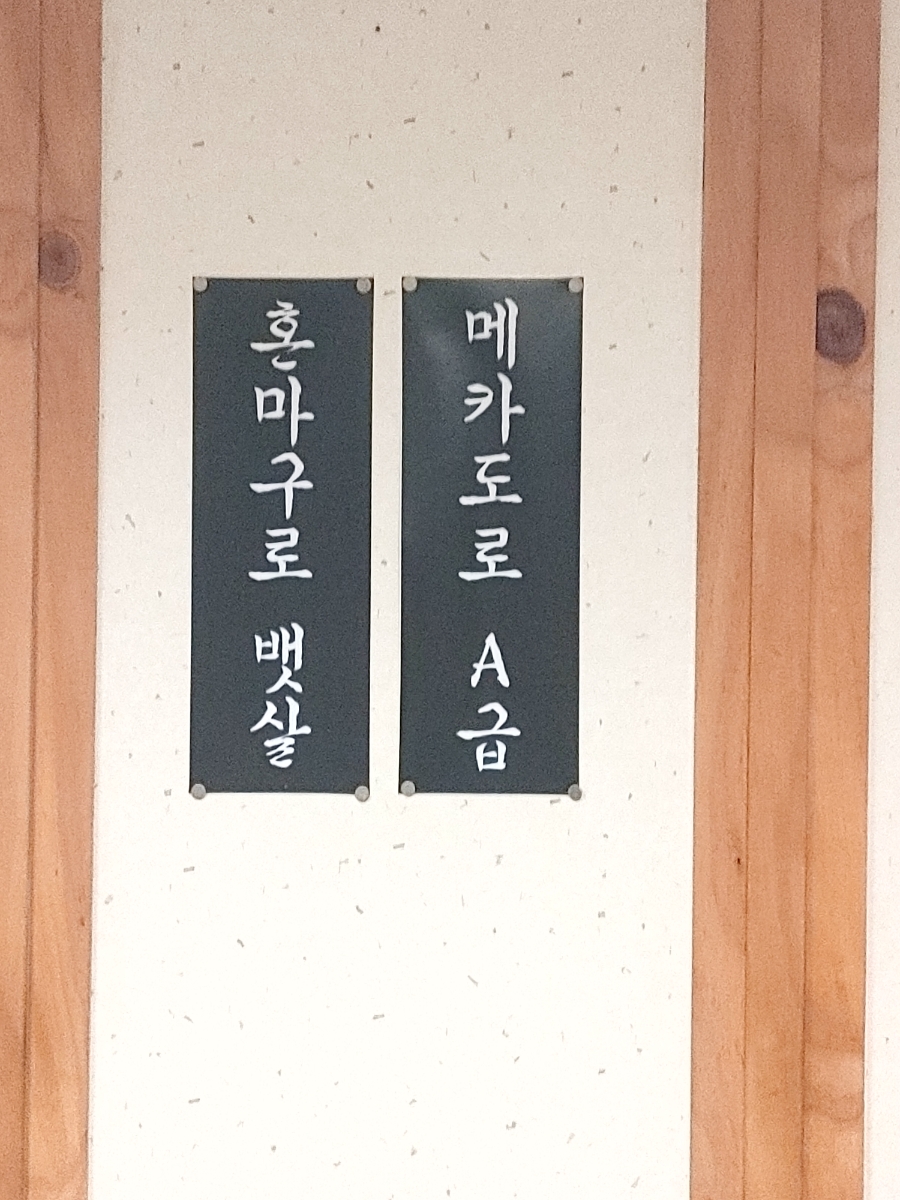 혼마구로 뱃살
메카도로 A급